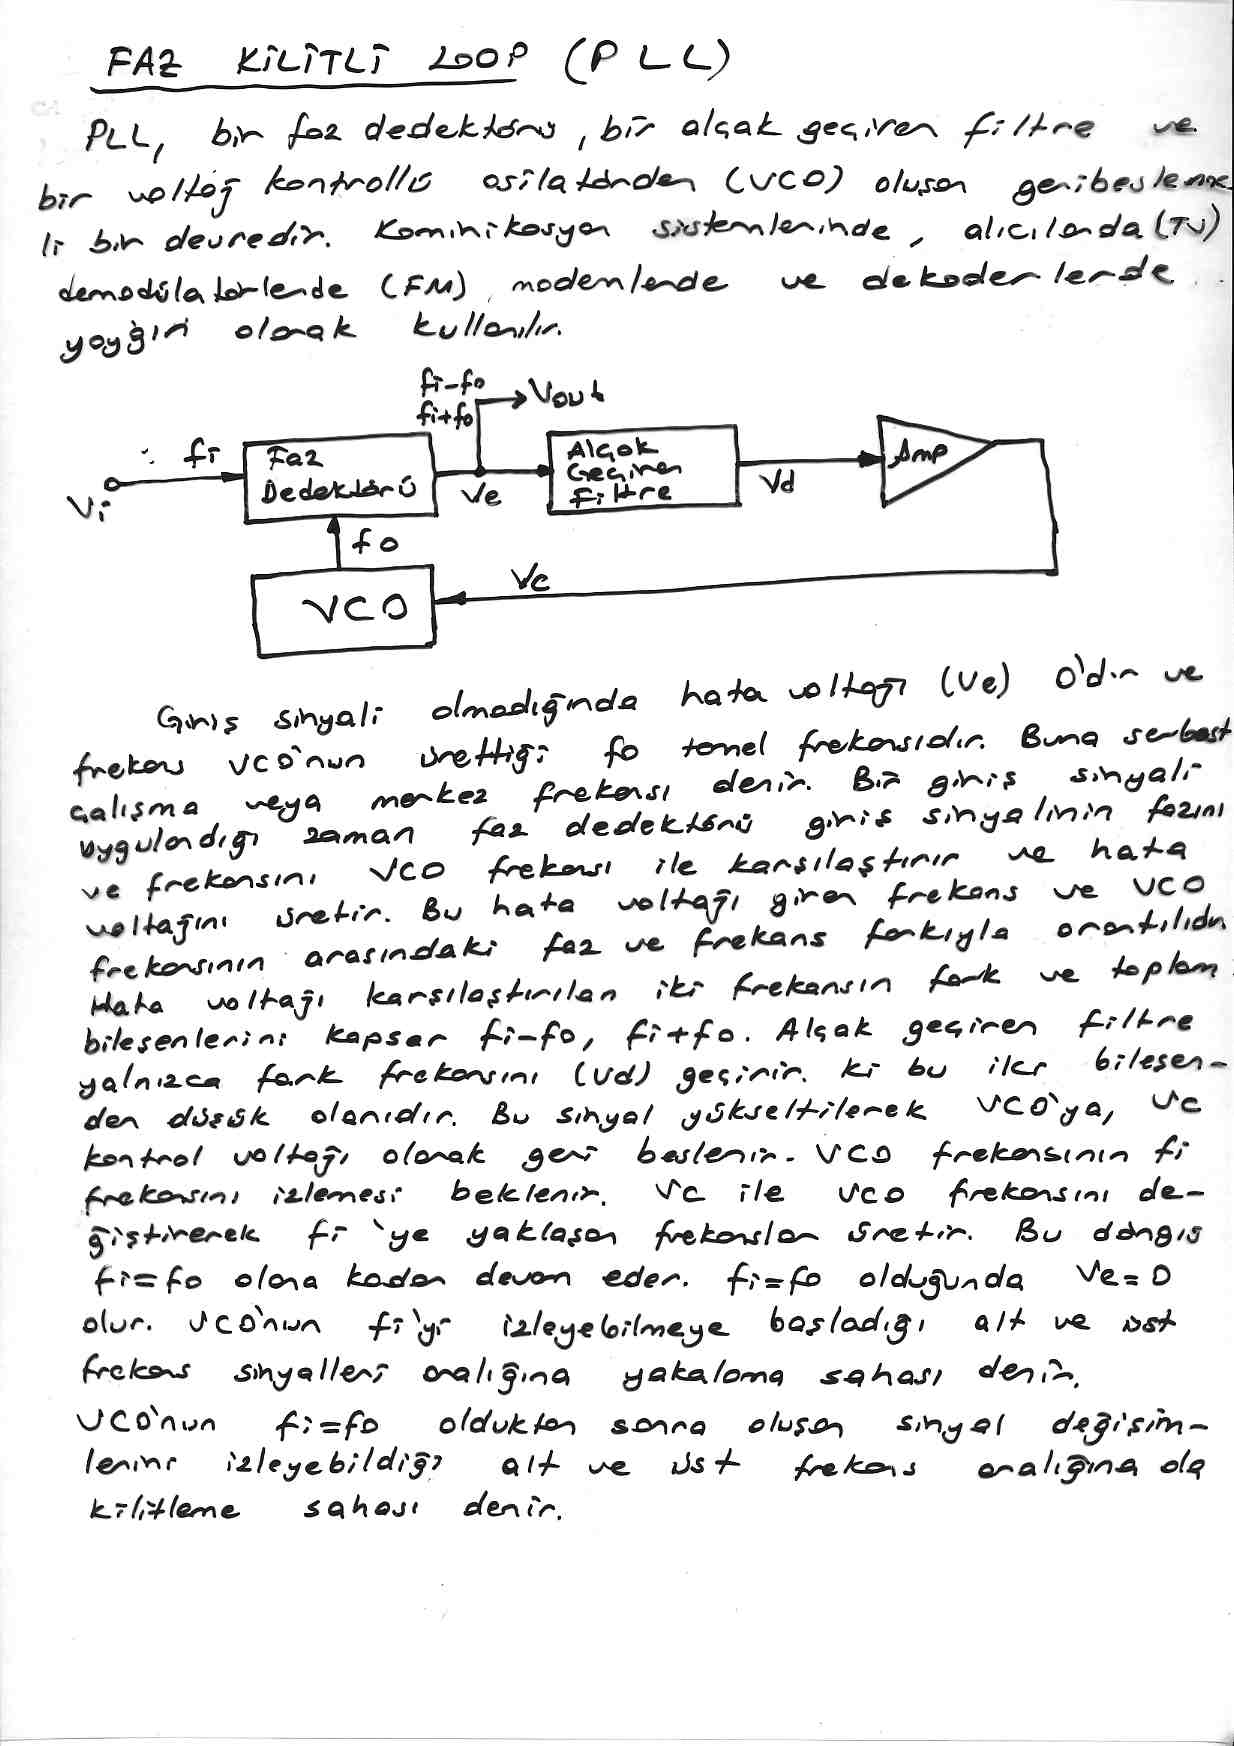 FAZ KİLİTLİ LOOP (PLL)
PLL, bir faz dedektörü, bir alçak geçiren filtre ve
bir voltaj kontrollü osilatörden (VCO) oluşan geribesleme
li bir devredir. Kominikasyon sistemlerinde, alıcılarda (TV)
demodülatörlerde (FM), modemlerde ve dekoderlerde
yaygın olarak kullanılır.
fi-fo
fi+fo
Vout
fi
Faz
Dedektörü
Alçak
Geçiren
Filtre
Amp
Vi
Ve
Vd
fo
Vc
VCO
Giriş sinyali olmadığında hata voltajı (Ve) 0'dır ve
frekans VCO'nun ürettiği fo temel frekansıdır. Buna serbest
çalışma veya merkez frekansı denir. Bir giriş sinyali
uygulandığı zaman faz dedektörü giriş sinyalinin fazını
ve frekansını VCO frekansı ile karşılaştırır ve hata
voltajını üretir. Bu hata voltajı giren frekans ve VCO
frekansının arasındaki faz ve frekans farkıyla orantılıdır.
Hata voltajı karşılaştırılan iki frekansın fark ve toplam
bileşenlerini kapsar fi-fo, fi+fo. Alçak geçiren filtre
yalnızca fark frekansını (Vd) geçirir. ki bu iki bileşen-
den düşük olanıdır. Bu sinyal yükseltilerek VCO'ya, Vc
kontrol voltajı olarak geri beslenir. VCO frekansının fi
frekansını izlemesi beklenir. Vc ile VCO frekansını de-
ğiştirerek fi'ye yaklaşan frekanslar üretir. Bu döngüs
fi=fo olana kadar devam eder. fi=fo olduğunda Ve=0
olur. VCO'nun fi'yi izleyebilmeye başladığı alt ve üst
frekans sinyalleri aralığına yakalama sahası denir.
VCO'nun fi=fo olduktan sonra oluşan sinyal değişim-
lerini izleyebildiği alt ve üst frekans aralığına da
kilitleme sahası denir.